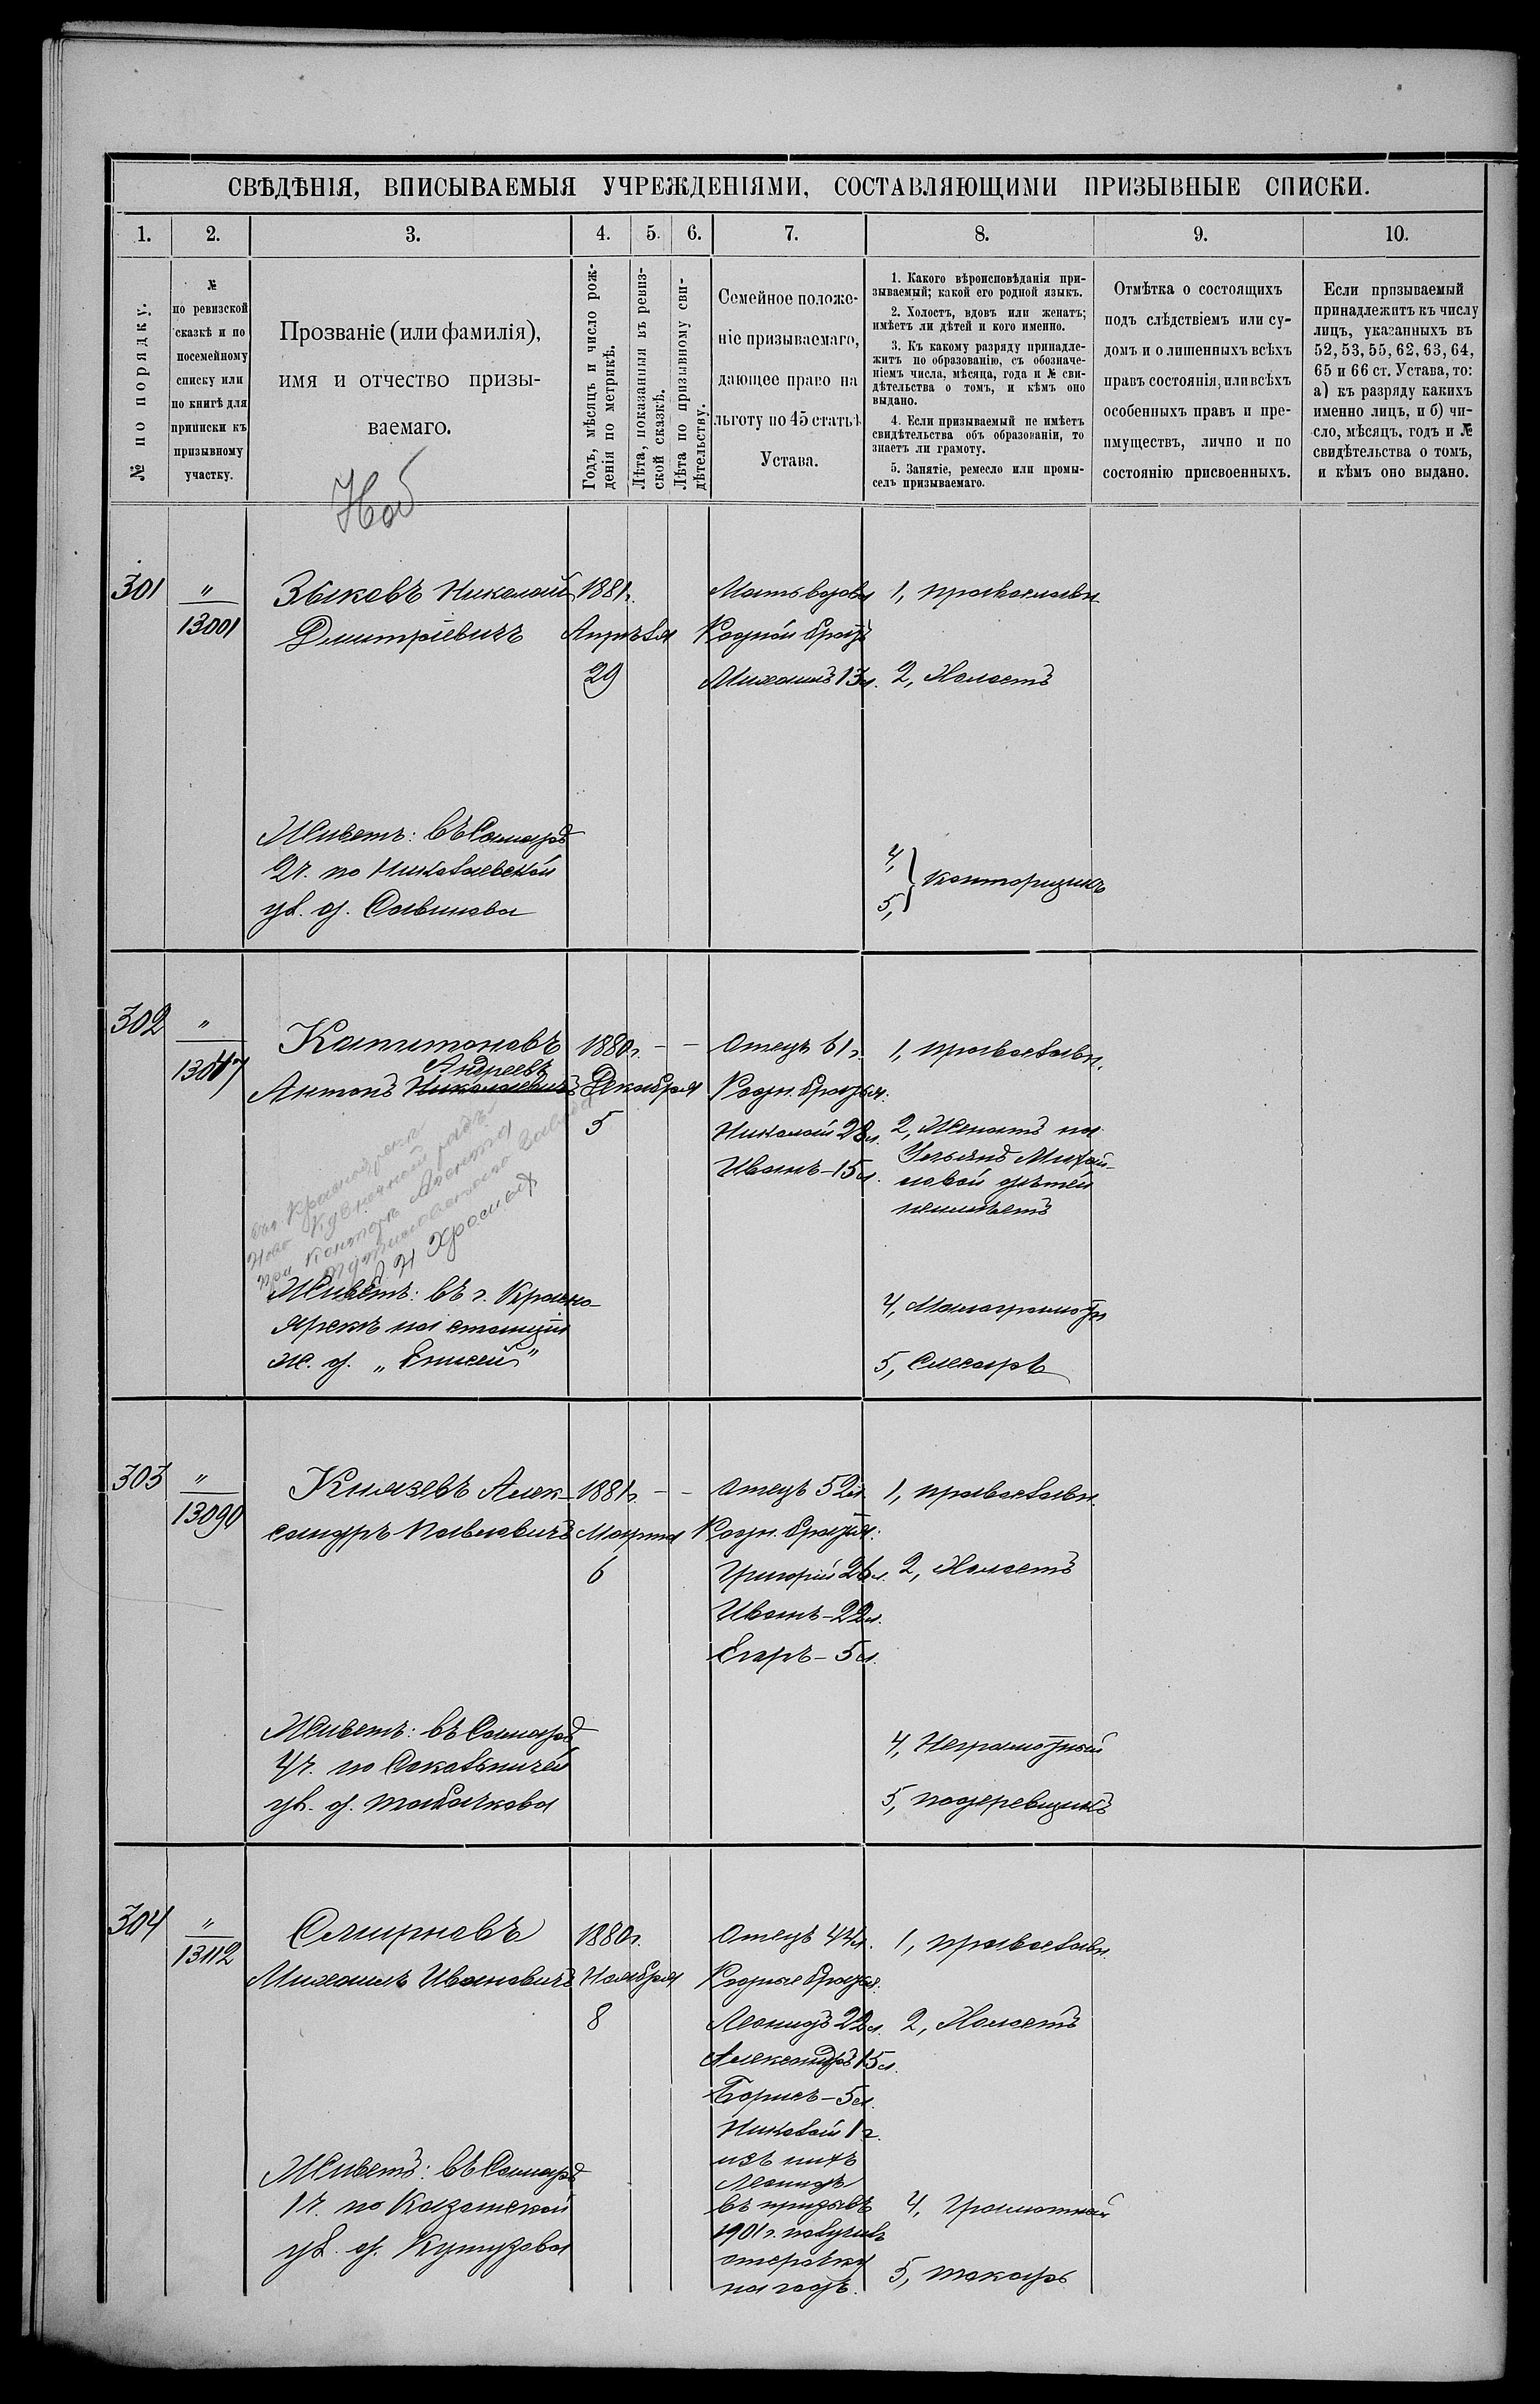 СВѢДѢНІЯ, ВПИСЫВАЕМЫЯ УЧРЕЖДЕНІЯМИ, СОСТАВЛЯЮЩИМИ ПРИЗЫВНЫЕ СПИСКИ.
1. 2. 3. 4. 5. 6. 7. 8. 9. 10.
№ по порядку.
№
по ревизской
сказкѣ и по
посемейному
списку или
по книгѣ для
приписки къ
призывному
участку.
Прозваніе (или фамилія),
имя и отчество призы-
ваемаго.
Годъ, мѣсяцъ и число рож-
денія по метрикѣ.
Лѣта, показанныя въ ревиз-
ской сказкѣ.
Лѣта по призывному сви-
дѣтельству.
Семейное положе-
ніе призываемаго,
дающее право на
льготу по 45 статьѣ
Устава.
1. Какого вѣроисповѣданія при-
зываемый; какой его родной языкъ.
2. Холостъ, вдовъ или женатъ;
имѣетъ ли дѣтей и кого именно.
3. Къ какому разряду принадле-
житъ по образованію, съ обозначе-
ніемъ числа, мѣсяца, года и № сви-
дѣтельства о томъ, и кѣмъ оно
выдано.
4. Если призываемый не имѣетъ
свидѣтельства объ образованіи, то
знаетъ ли грамоту.
5. Занятіе, ремесло или промы-
селъ призываемаго.
Отмѣтка о состоящихъ
подъ слѣдствіемъ или су-
домъ и о лишенныхъ всѣхъ
правъ состоянія, или всѣхъ
особенныхъ правъ и пре-
имуществъ, лично и по
состоянію присвоенныхъ.
Если призываемый
принадлежитъ къ числу
лицъ, указанныхъ въ
52, 53, 55, 62, 63, 64,
65 и 66 ст. Устава, то:
а) къ разряду какихъ
именно лицъ, и б) чи-
сло, мѣсяцъ, годъ и №
свидѣтельства о томъ,
и кѣмъ оно выдано.
301
"
13001
Зыковъ Николай
Дмитріевичъ
1881г.
Апрѣля
29
Мать вдова
Родной братъ
Михаилъ 13л.
1, православн.
2, Холостъ
Живетъ: въ Самарѣ
2ч. по Николаевской
ул. д. Савинова
4,
5,
} конторщикъ
302
"
13047
Капитоновъ
Андреевъ
Антонъ Николаевичъ
1880г. - -
Декабря
5
Отецъ 61г.
Родн. братья:
Николай 28л.
Иванъ - 15л.
1, православн.
2, Женатъ на
Ульянѣ Михай-
ловой дѣтей
неимѣетъ
Живетъ: въ г. Красно-
ярскѣ на станціи
ж. д. „Енисей"
4, Малограмотн
5, Слесарь
303
"
13090
Князевъ Алек-
сандръ Павловичъ
1881г. - -
Марта
6
Отецъ 52л.
Родн. братья:
Григорій 26л.
Иванъ - 22л.
Егоръ - 5л.
1, православн.
2, Холостъ
Живетъ: въ Самарѣ
4ч. по Сокольничей
ул. д. Табачкова
4, Неграмотный
5, подеревщикъ
304
"
13112
Смирновъ
Михаилъ Ивановичъ
1880г.
Ноября
8
Отецъ 44л.
Родные братья:
Леонидъ 22л.
Александръ 15л.
Борисъ - 5л.
Николай 1г.
изъ нихъ
Леонидъ
въ призывъ
1901г. получилъ
отсрочку
на годъ.
1, православн.
2, Холостъ
Живетъ: въ Самарѣ
1ч. по Казанской
ул. д. Кутузова
4, Грамотный
5, токарь